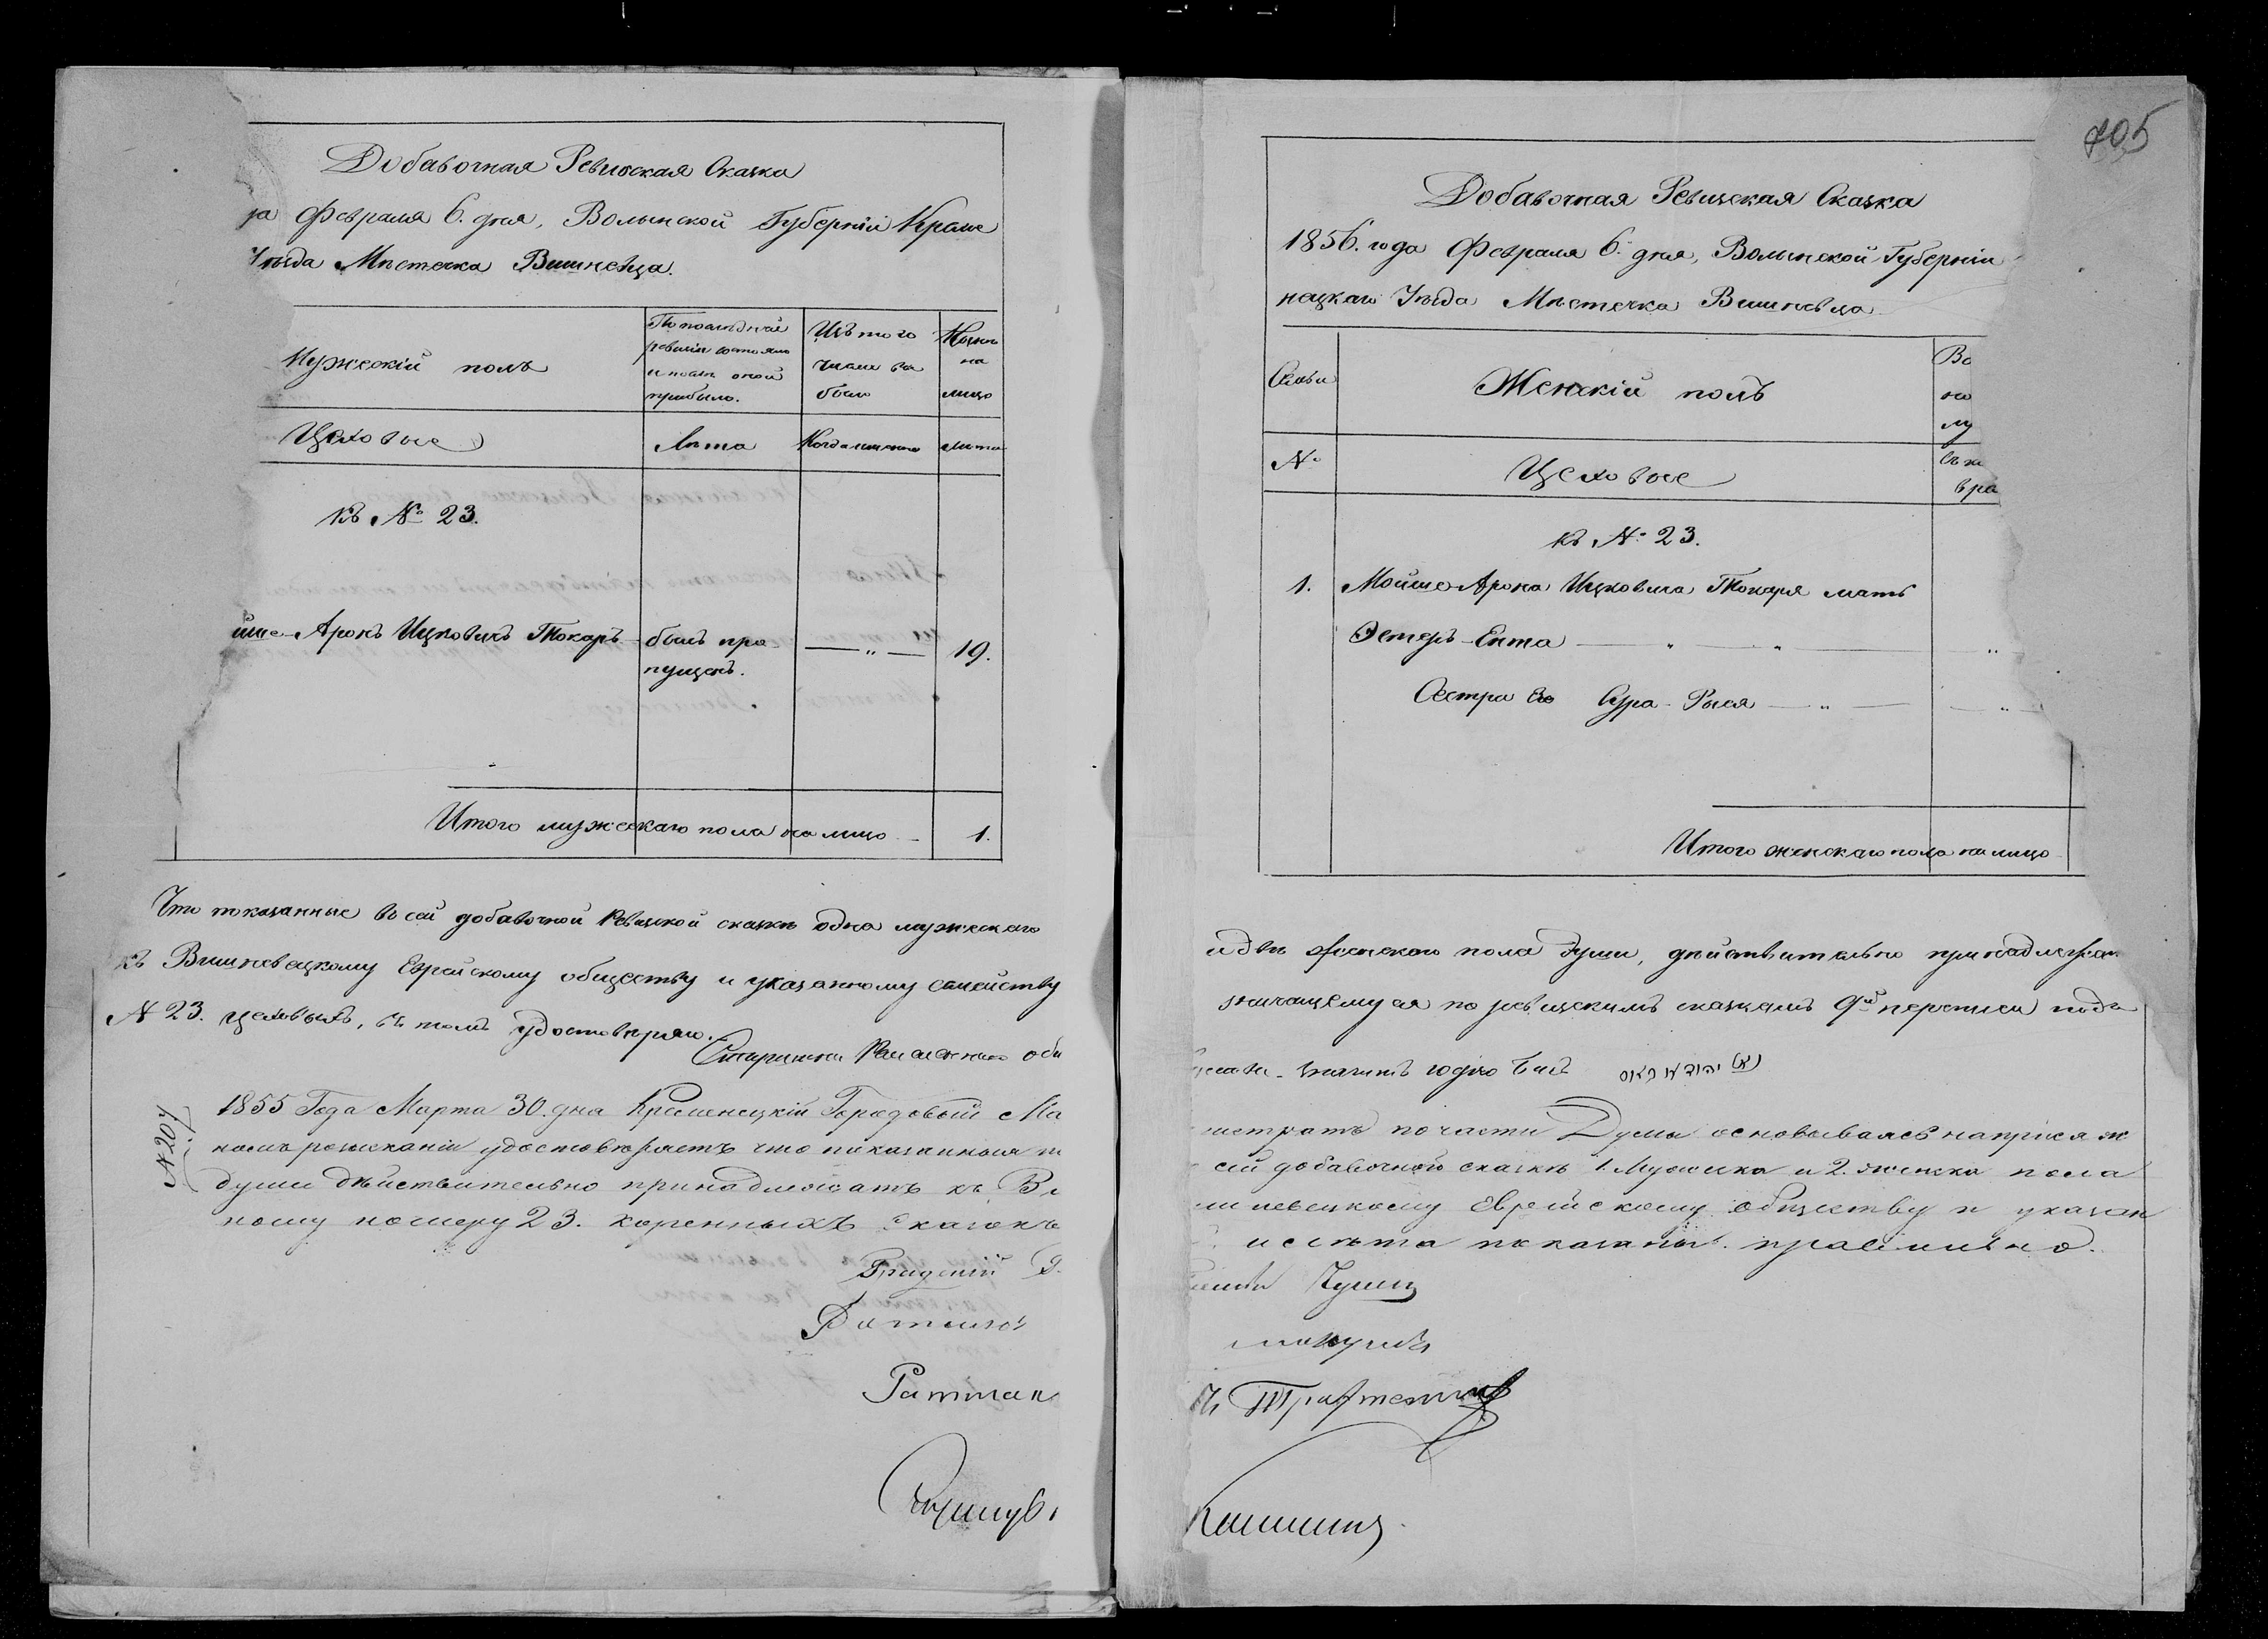 Добавочная Ревизская Сказка
Февраля 6. дня, Волынской Губерніи Креме
Уѣзда Мѣстечка Вишневца.
Мужескій полъ
По последней
ревизіи состояло
и послѣ оной
прибыло.
Изъ того
числа вы
было
Нынѣ
на
лицо
Цеховые
Лѣта
Когда именно
Лѣта
Къ № 23.
йше-Аронъ Ицковичъ Токаръ
былъ про-
пущенъ.
— „ —
19.
Итого мужескаго пола на лицо —
1.
Что показанные въ сей добавочной Ревизской сказкѣ одна мужескаго
къ Вишневецкому Еврейскому обществу и указанному семейству
№ 23. цеховыхъ, въ томъ удостовѣряю.
Старшина
№ 207
1855 Года Марта 30. дня Кременецкій Городовый Ма
номъ розысканіи удостовѣряетъ что показанныя
души дѣйствительно принадлежатъ къ Ви
ному номеру 23. коренныхъ сказокъ
Ратман
405
Добавочная Ревизская Сказка
1856. года Февраля 6. дня, Волынской Губерніи
нецкаго Уѣзда Мѣстечка Вишневца
Семьи
Женскій полъ
Во
но
му
№
Цеховые
вра
къ № 23.
1. Мойше-Арона Ицковича Токаря мать
Эстеръ-Ента — „ — „ — „
Сестра Его Сура-Рыся — „ — „
Итого женскаго пола на лицо
и двѣ женскаго пола души, дѣйствительно принадлежат
значащемуся по ревизскимъ сказкамъ 9й переписи подъ
יהודא
истратъ по части Думы основываясь на присяж
сей добавочной сказкѣ 1. Мужска и 2. женска пола
шневецкому Еврейскому обществу и указан
и слѣта показаны правильно.